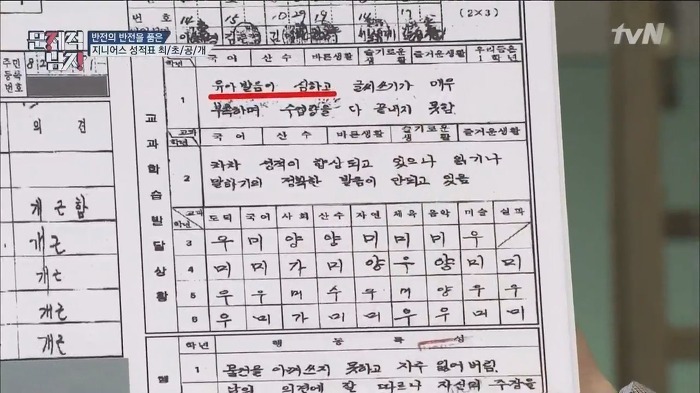 문제적남자
반전의 반전을 품은
지니어스 성적표 최/초/공/개
tvN
번호 14 15 19 14 17 (2×3)
주민등록번호 8 2
의 견
개근함
개근
개근
개근
개근
교과학습발달상황
학년 국어 산수 바른생활 슬기로운생활 즐거운생활 우리들은1학년
1 유아 발음이 심하고 글씨쓰기가 매우
부족하며 수업량을 다 끝내지 못함
교과 학년 국어 산수 바른생활 슬기로운생활 즐거운생활
2 차차 성적이 향상되고 있으나 읽기나
말하기의 정확한 발음이 안되고 있음
교과 학년 도덕 국어 사회 산수 자연 체육 음악 미술 실과
3 우 미 양 양 미 미 미 우
4 미 미 가 미 양 우 양 미 미
5 우 우 미 수 우 미 양 우 우
6 우 미 가 미 미 우 우 미 미
학년 행동특성
행
1 물건을 아껴쓰지 못하고 자주 잃어버림.
남의 의견에 잘 따르나 자신의 주장을